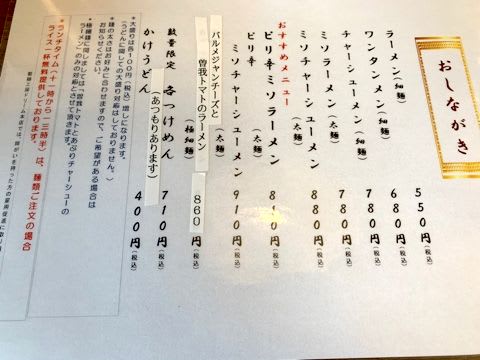 おしながき
ラーメン(細麺) 550円(税込)
ワンタンメン(細麺) 680円(税込)
チャーシューメン(細麺) 780円(税込)
ミソラーメン(太麺) 780円(税込)
ミソチャーシューメン(太麺) 880円(税込)
おすすめメニュー
ピリ辛ミソラーメン(太麺) 810円(税込)
ピリ辛
ミソチャーシューメン(太麺) 910円(税込)
パルメジャンチーズと
曽我トマトのラーメン 860円(税込)
数量限定 つけめん(極細麺) 710円(税込)
(あつもりあります)
かけうどん 400円(税込)
*大盛りは各100円(税込)増しになります。
(うどんに関しての大盛り対応はしておりません。)
*麺の太さはお好みに合わせますので、ご希望がある場合は
お知らせください。
極細麺に関しましては「曽我トマトとあぶりチャーシューの
ラーメン」のみの対応とさせて頂きます。
*ランチタイム(十一時から一三時半)は、麺類ご注文の場合
ライス一杯無料提供しております。